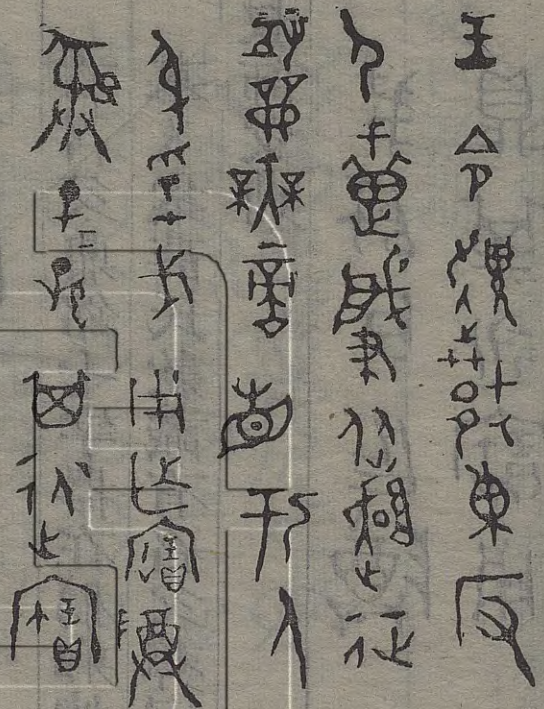 王令趞捷東反
尸疐肇從趞征
攻龠無啻省于人
身孚戈用乍寶尊
彝子〓孫其永寶